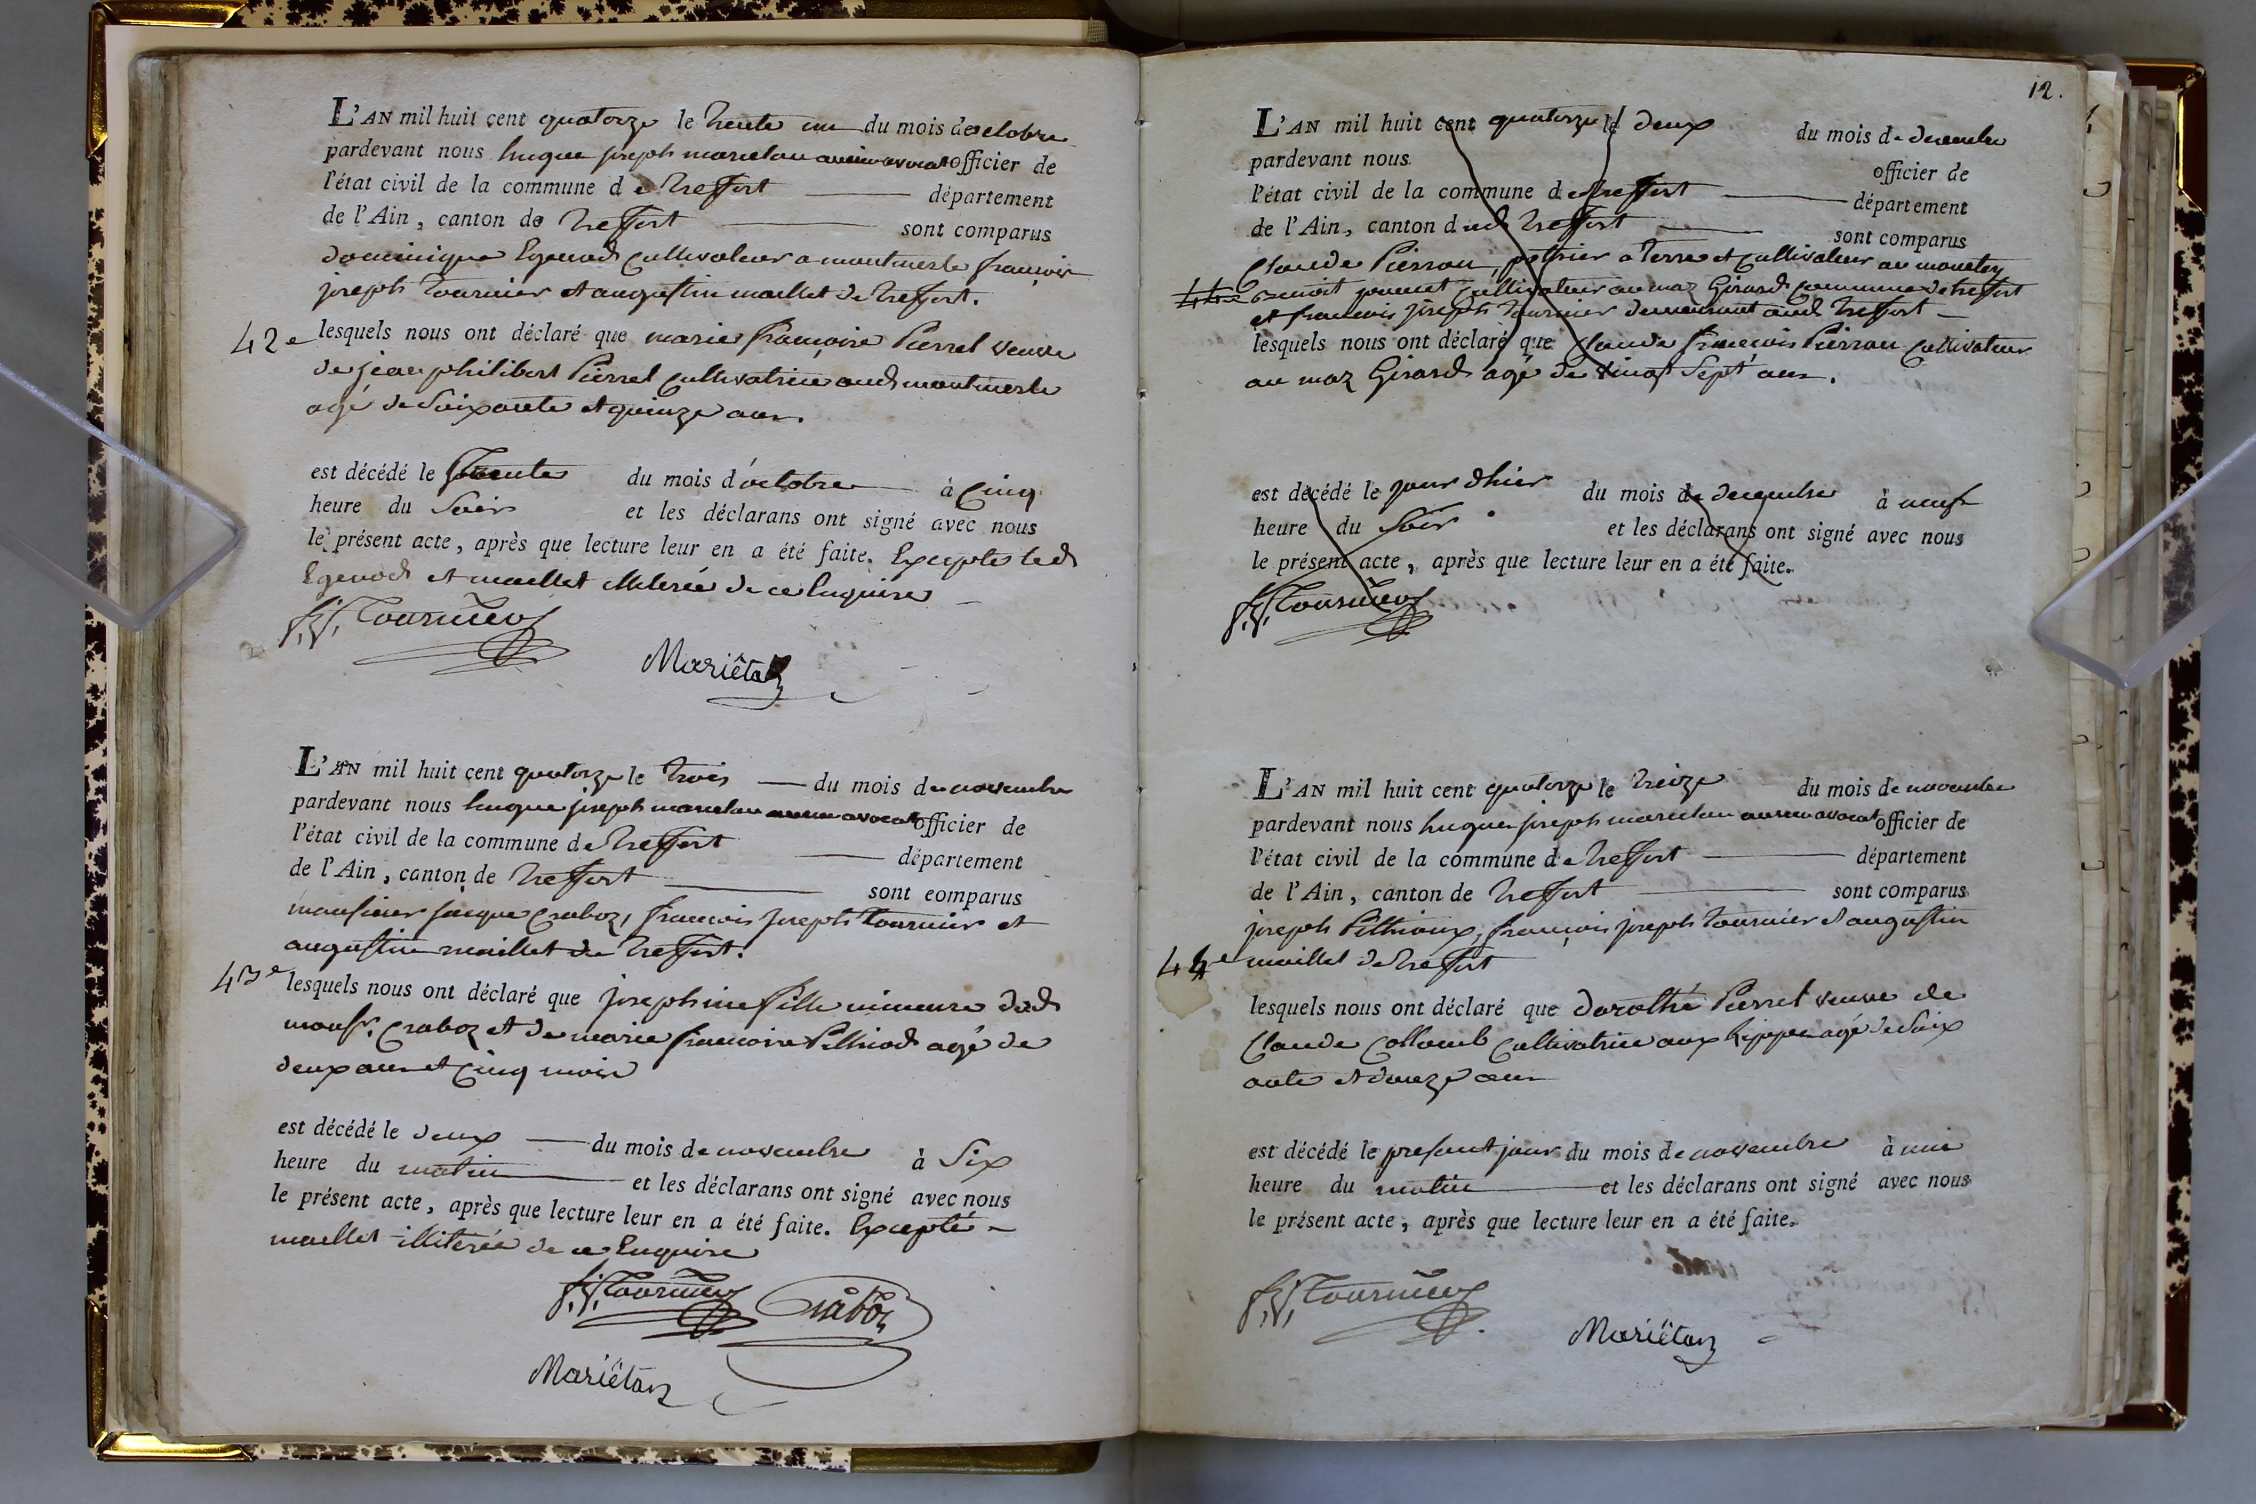 L'AN mil huit cent quatorze le trente un du mois de octobre
pardevant nous hugue joseph marietan ancien avocat officier de
l'état civil de la commune de treffort département
de l'Ain, canton de treffort sont comparus
dominique Egenod cultivateur a montmerle françois
joseph tournier et augustin maillet de treffort.
42e lesquels nous ont déclaré que marie françoise Pierrel veuve
de jean philibert Pierrel cultivatrice aud montmerle
agé de soixante et quinze ans.
est décédé le trente du mois d'octobre à cinq
heure du soir et les déclarans ont signé avec nous
le présent acte, après que lecture leur en a été faite. Exceptés led
Egenod et maillet illiterée de ce Enquire
f. j. Tournier
Mariêtan
L'AN mil huit cent quatorze le trois du mois de novembre
pardevant nous hugue joseph marietan ancien avocat officier de
l'état civil de la commune de treffort département
de l'Ain, canton de treffort sont comparus
monsieur jacque craboz, francois joseph tournier et
augustin maillet de treffort.
43e lesquels nous ont déclaré que josephine fille mineure dud
monsr. craboz et de marie francoise Pilliod agé de
deux ans et cinq mois
est décédé le deux du mois de novembre à six
heure du matin et les déclarans ont signé avec nous
le présent acte, après que lecture leur en a été faite. Excepté
maillet illiterée de ce Enquire
f. j. Tournier Craboz
Mariëtan
12.
L'AN mil huit cent quatorze le deux du mois de decembre
pardevant nous officier de
l'état civil de la commune de treffort département
de l'Ain, canton dud treffort sont comparus
Claude Pierron, pottrier a terre et cultivateur au monetay
44e benoit jouvent cultivateur au maz Girard commune de treffort
et francois joseph tournier demeurant aud treffort
lesquels nous ont déclaré que claude francois Pierron cultivateur
au maz Girard agé de vingt sept ans.
est décédé le jour dhier du mois de decembre à neuf
heure du soir et les déclarans ont signé avec nous
le présent acte, après que lecture leur en a été faite.
f. j. Tournier
L'AN mil huit cent quatorze le treize du mois de novembre
pardevant nous hugue joseph marietan ancien avocat officier de
l'état civil de la commune de treffort département
de l'Ain, canton de treffort sont comparus
joseph Pithioux, françois joseph tournier et augustin
44e maillet de treffort
lesquels nous ont déclaré que dorothé Pierrel veuve de
Claude Collomb cultivatrice aux agé de soix
ante et douze ans
est décédé le present jour du mois de novembre à une
heure du matin et les déclarans ont signé avec nous
le présent acte, après que lecture leur en a été faite.
f. j. Tournier
Mariëtan